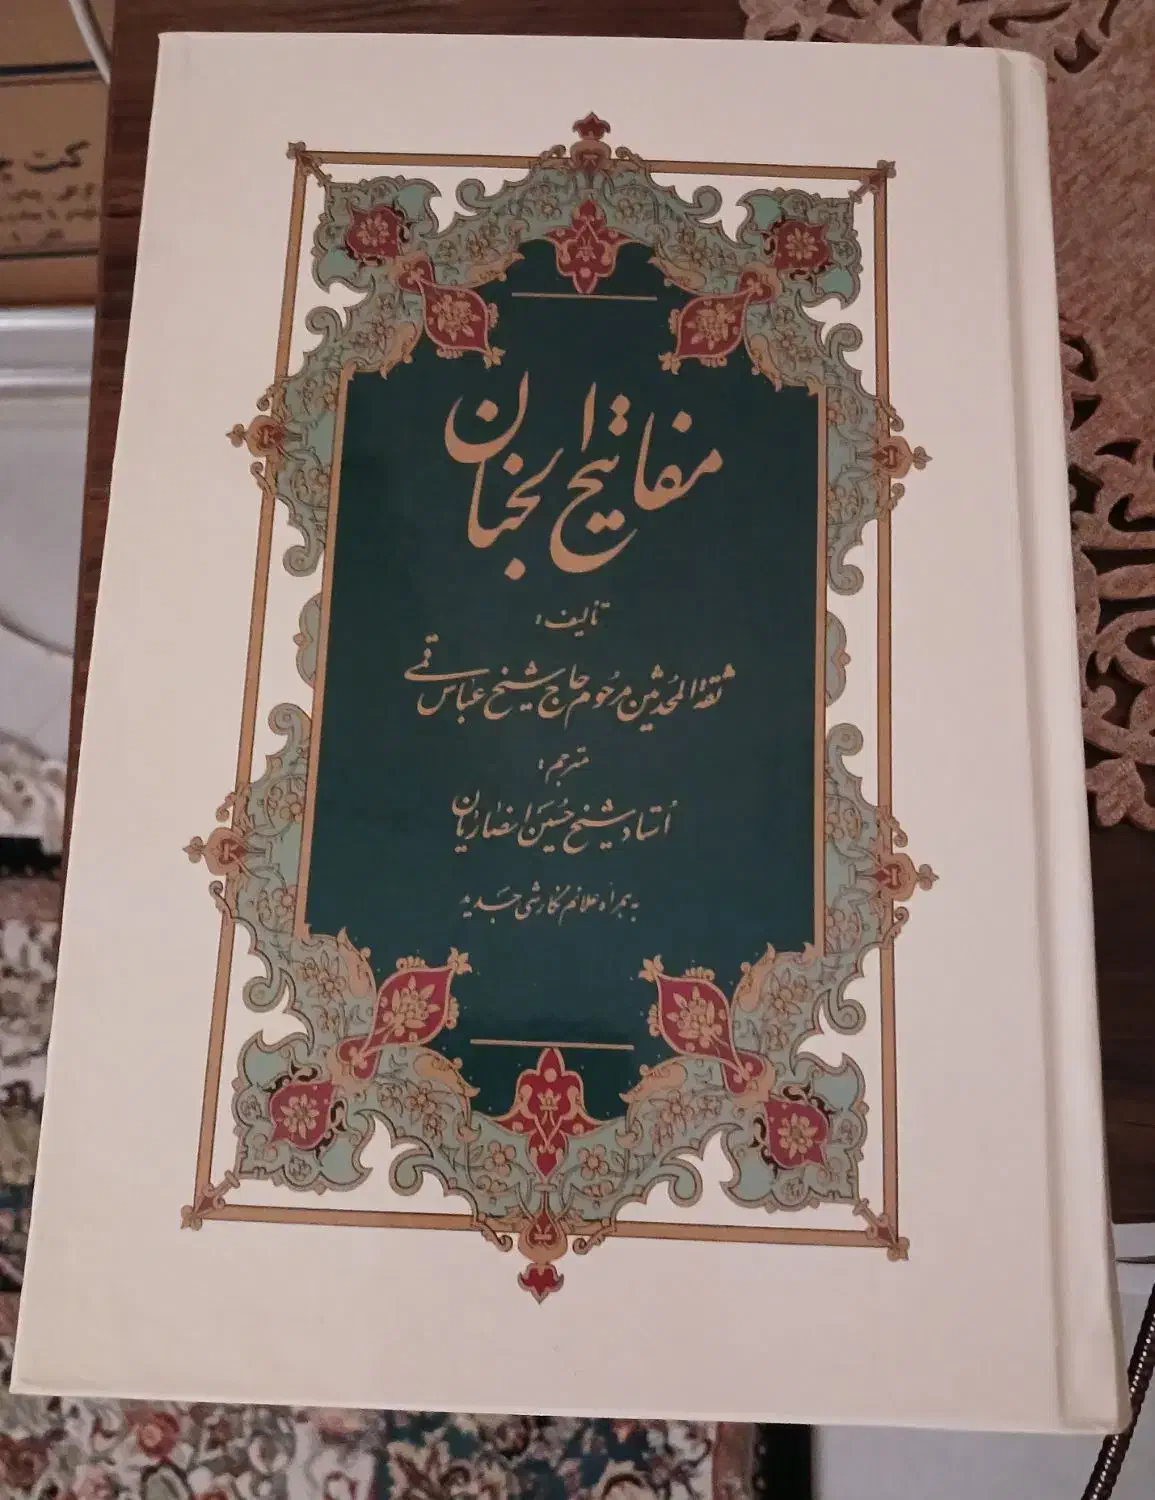 مفاتیح الجنان
تالیف:
ثقة المحدثین مرحوم حاج شیخ عباس قمی
مترجم:
استاد شیخ حسین انصاریان
به همراه علائم نگارشی جدید